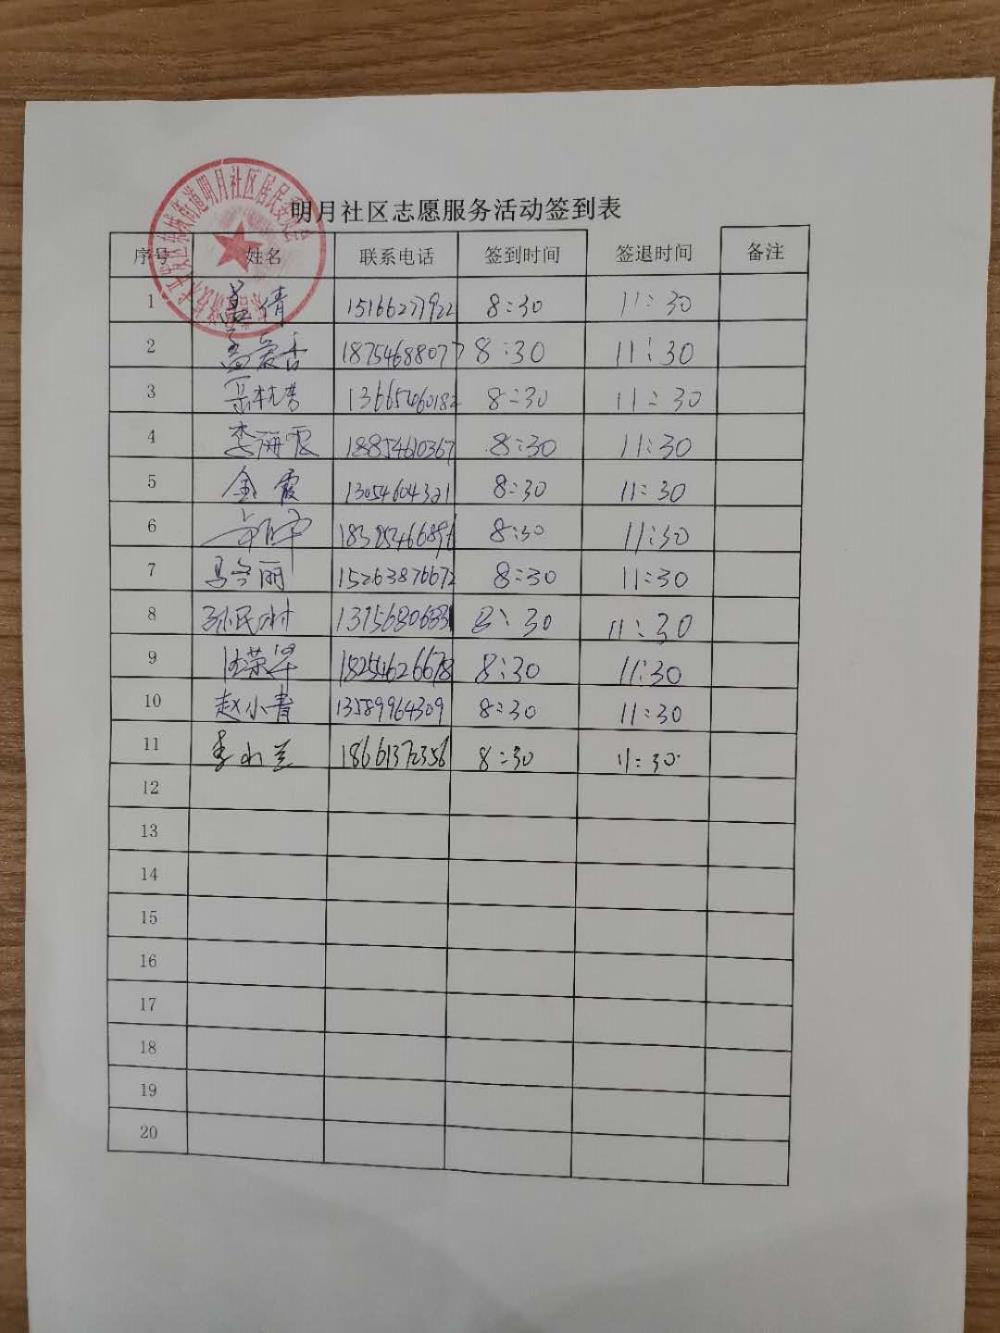 明月社区志愿服务活动签到表
序号 姓名 联系电话 签到时间 签退时间 备注
1 倩 15166277922 8:30 11:30
2 孟爱香 18754688077 8:30 11:30
3 13665460182 8:30 11:30
4 李丽霞 18854610367 8:30 11:30
5 金霞 13054604321 8:30 11:30
6 8:30 11:30
7 马令丽 15263876672 8:30 11:30
8 孙民村 8:30 11:30
9 汪荣军 18254626678 8:30 11:30
10 赵小青 13589964309 8:30 11:30
11 李小兰 18661372356 8:30 11:30
12
13
14
15
16
17
18
19
20